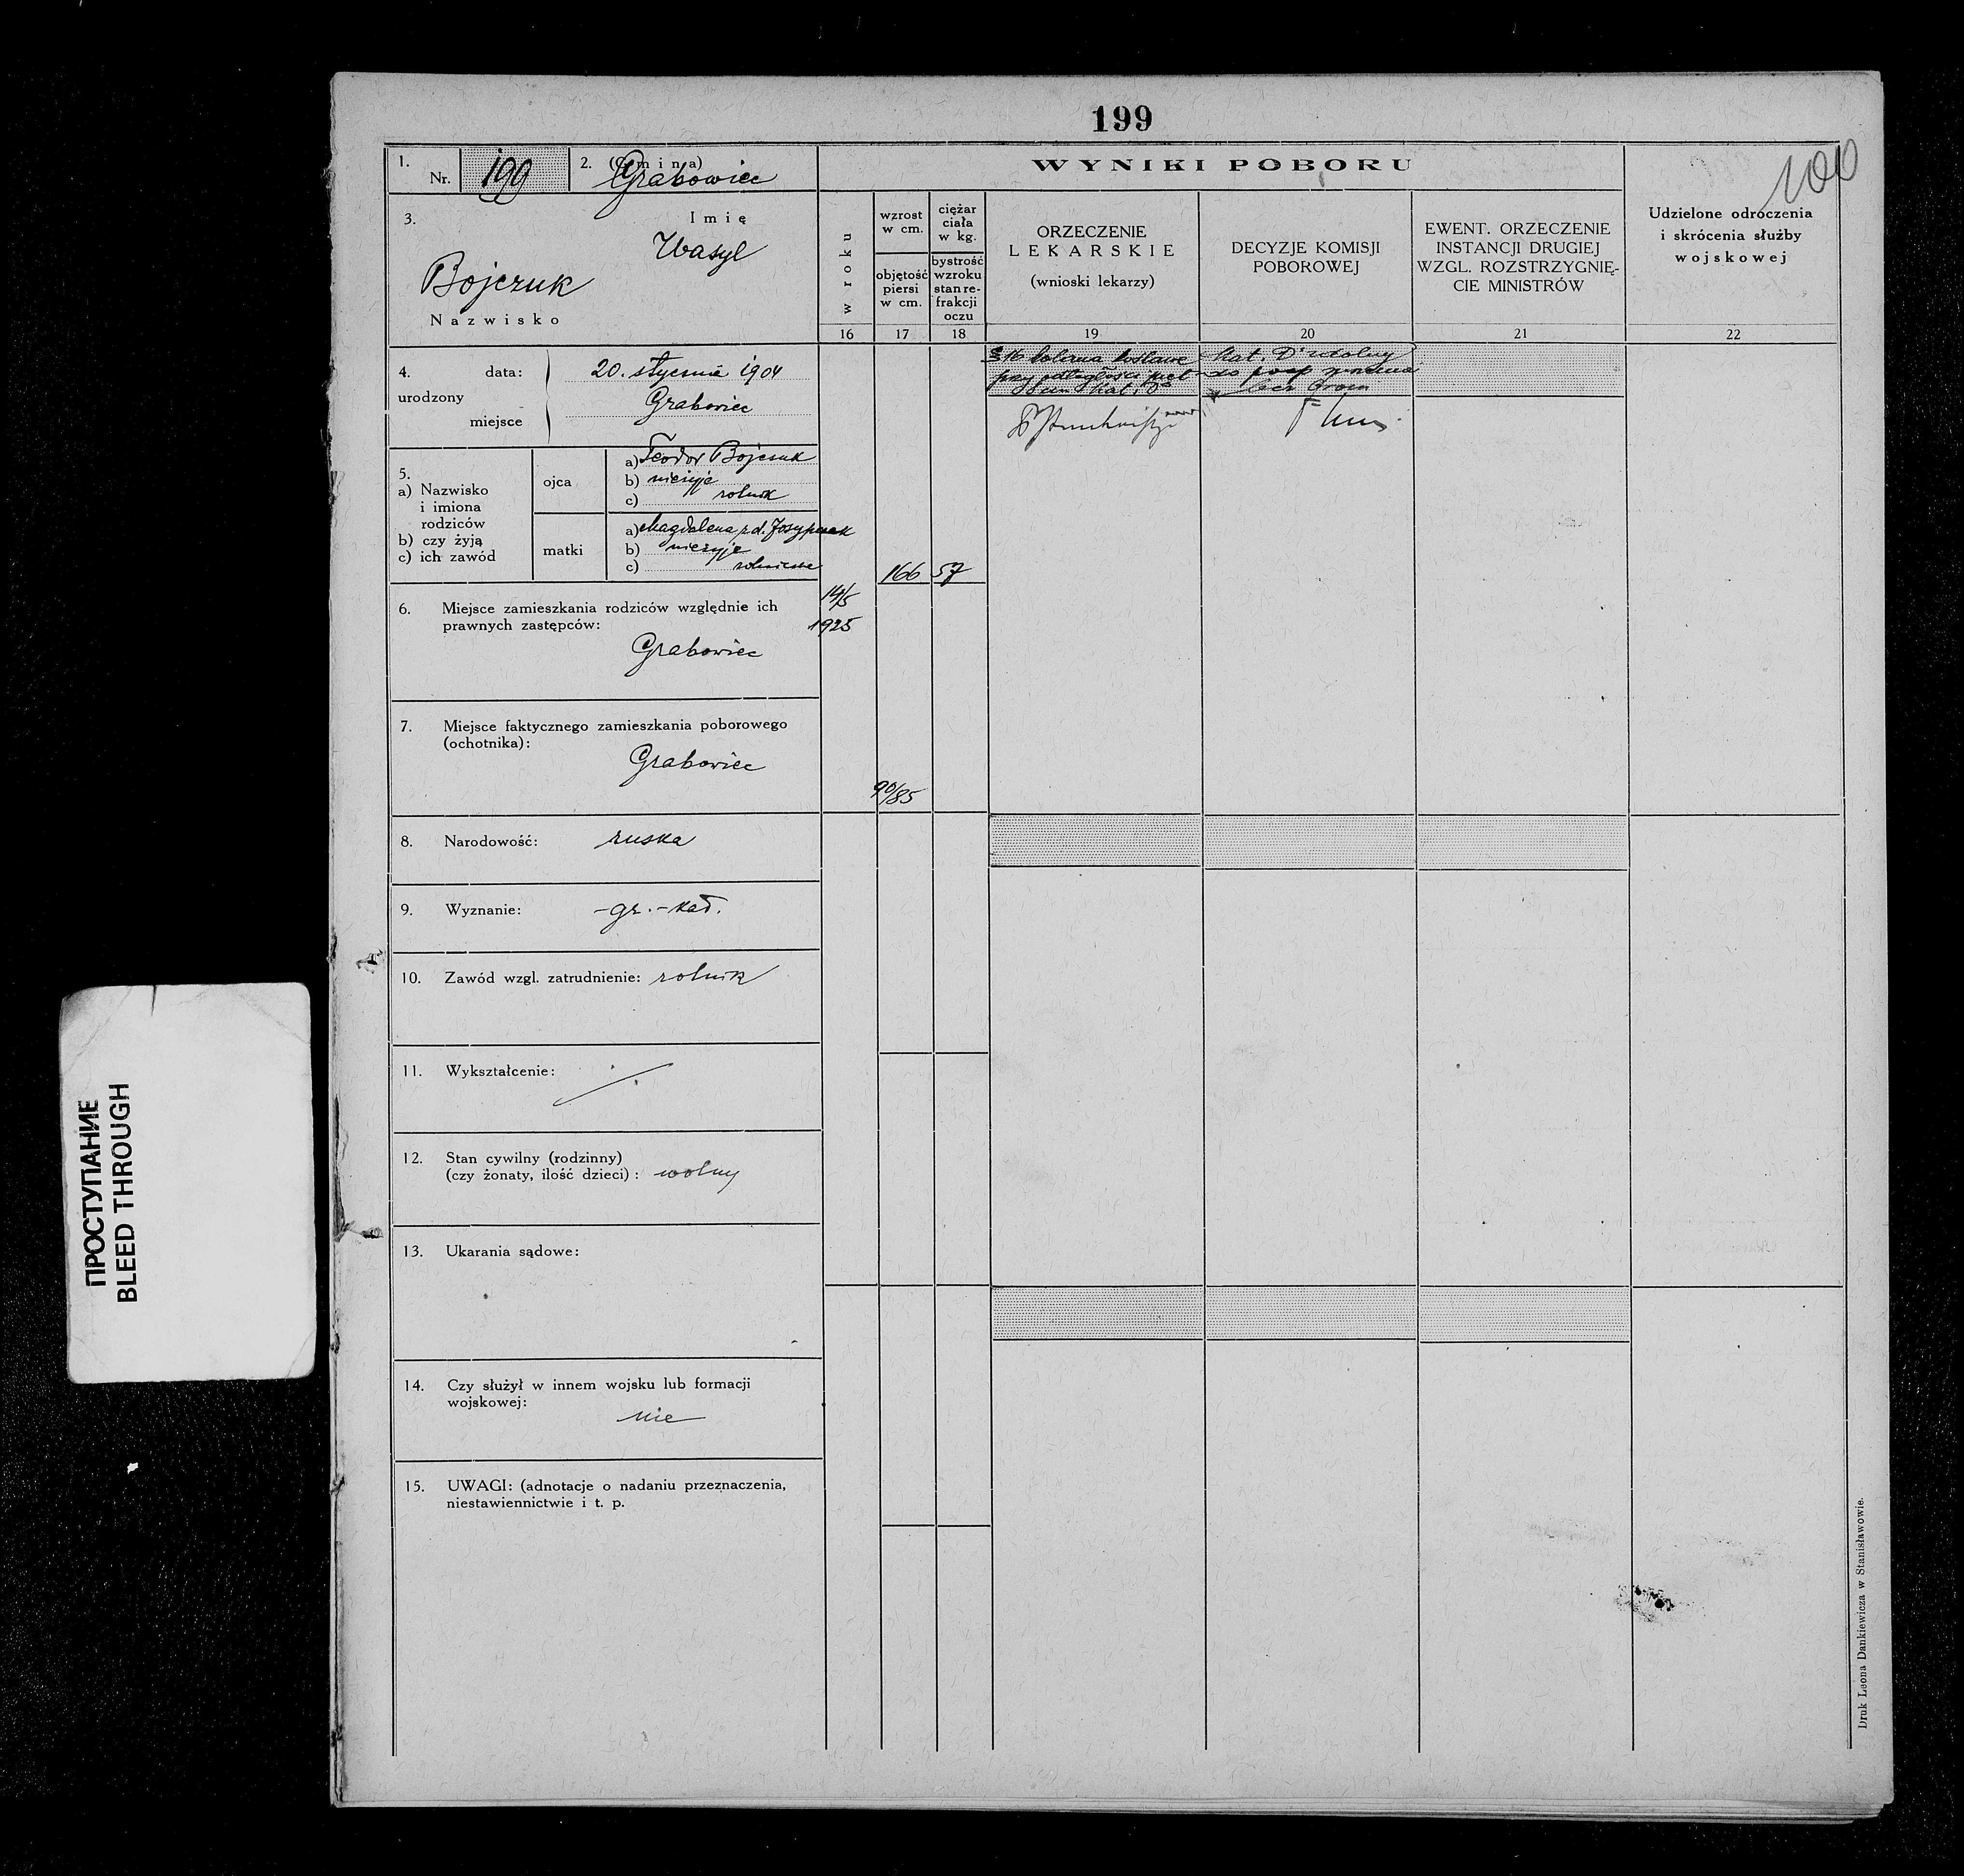 199
100
1. Nr. 199
2. (Gmina) Grabowiec
3. Imię
Wasyl
Bojczuk
Nazwisko
4. urodzony
data: 20. stycznia 1904
miejsce Grabowiec
5.
a) Nazwisko
i imiona
rodziców
b) czy żyją
c) ich zawód
ojca
a) Teodor Bojczuk
b) nieżyje
c) rolnik
matki
a) Magdalena z d.
b) nieżyje
c)
6. Miejsce zamieszkania rodziców względnie ich
prawnych zastępców:
Grabowiec
7. Miejsce faktycznego zamieszkania poborowego
(ochotnika):
Grabowiec
8. Narodowość: ruska
9. Wyznanie: -gr.-kat.
10. Zawód wzgl. zatrudnienie: rolnik
11. Wykształcenie:
12. Stan cywilny (rodzinny)
(czy żonaty, ilość dzieci): wolny
13. Ukarania sądowe:
14. Czy służył w innem wojsku lub formacji
wojskowej:
nie
15. UWAGI: (adnotacje o nadaniu przeznaczenia,
niestawiennictwie i t. p.
WYNIKI POBORU
w roku
16
wzrost
w cm.
objętość
piersi
w cm.
17
ciężar
ciała
w kg.
bystrość
wzroku
stan re-
frakcji
oczu
18
ORZECZENIE
LEKARSKIE
(wnioski lekarzy)
19
DECYZJE KOMISJI
POBOROWEJ
20
EWENT. ORZECZENIE
INSTANCJI DRUGIEJ
WZGL. ROZSTRZYGNIĘ-
CIE MINISTRÓW
21
Udzielone odroczenia
i skrócenia służby
wojskowej
22
14/5
1925
166
57
90/85
§ 16 kolana koślawe
przy odległości
kat. D
Kat. D zdolny
do posp. ruszenia
bez broni
Druk Leona Dankiewicza w Stanisławowie.
ПРОСТУПАНИЕ
BLEED THROUGH